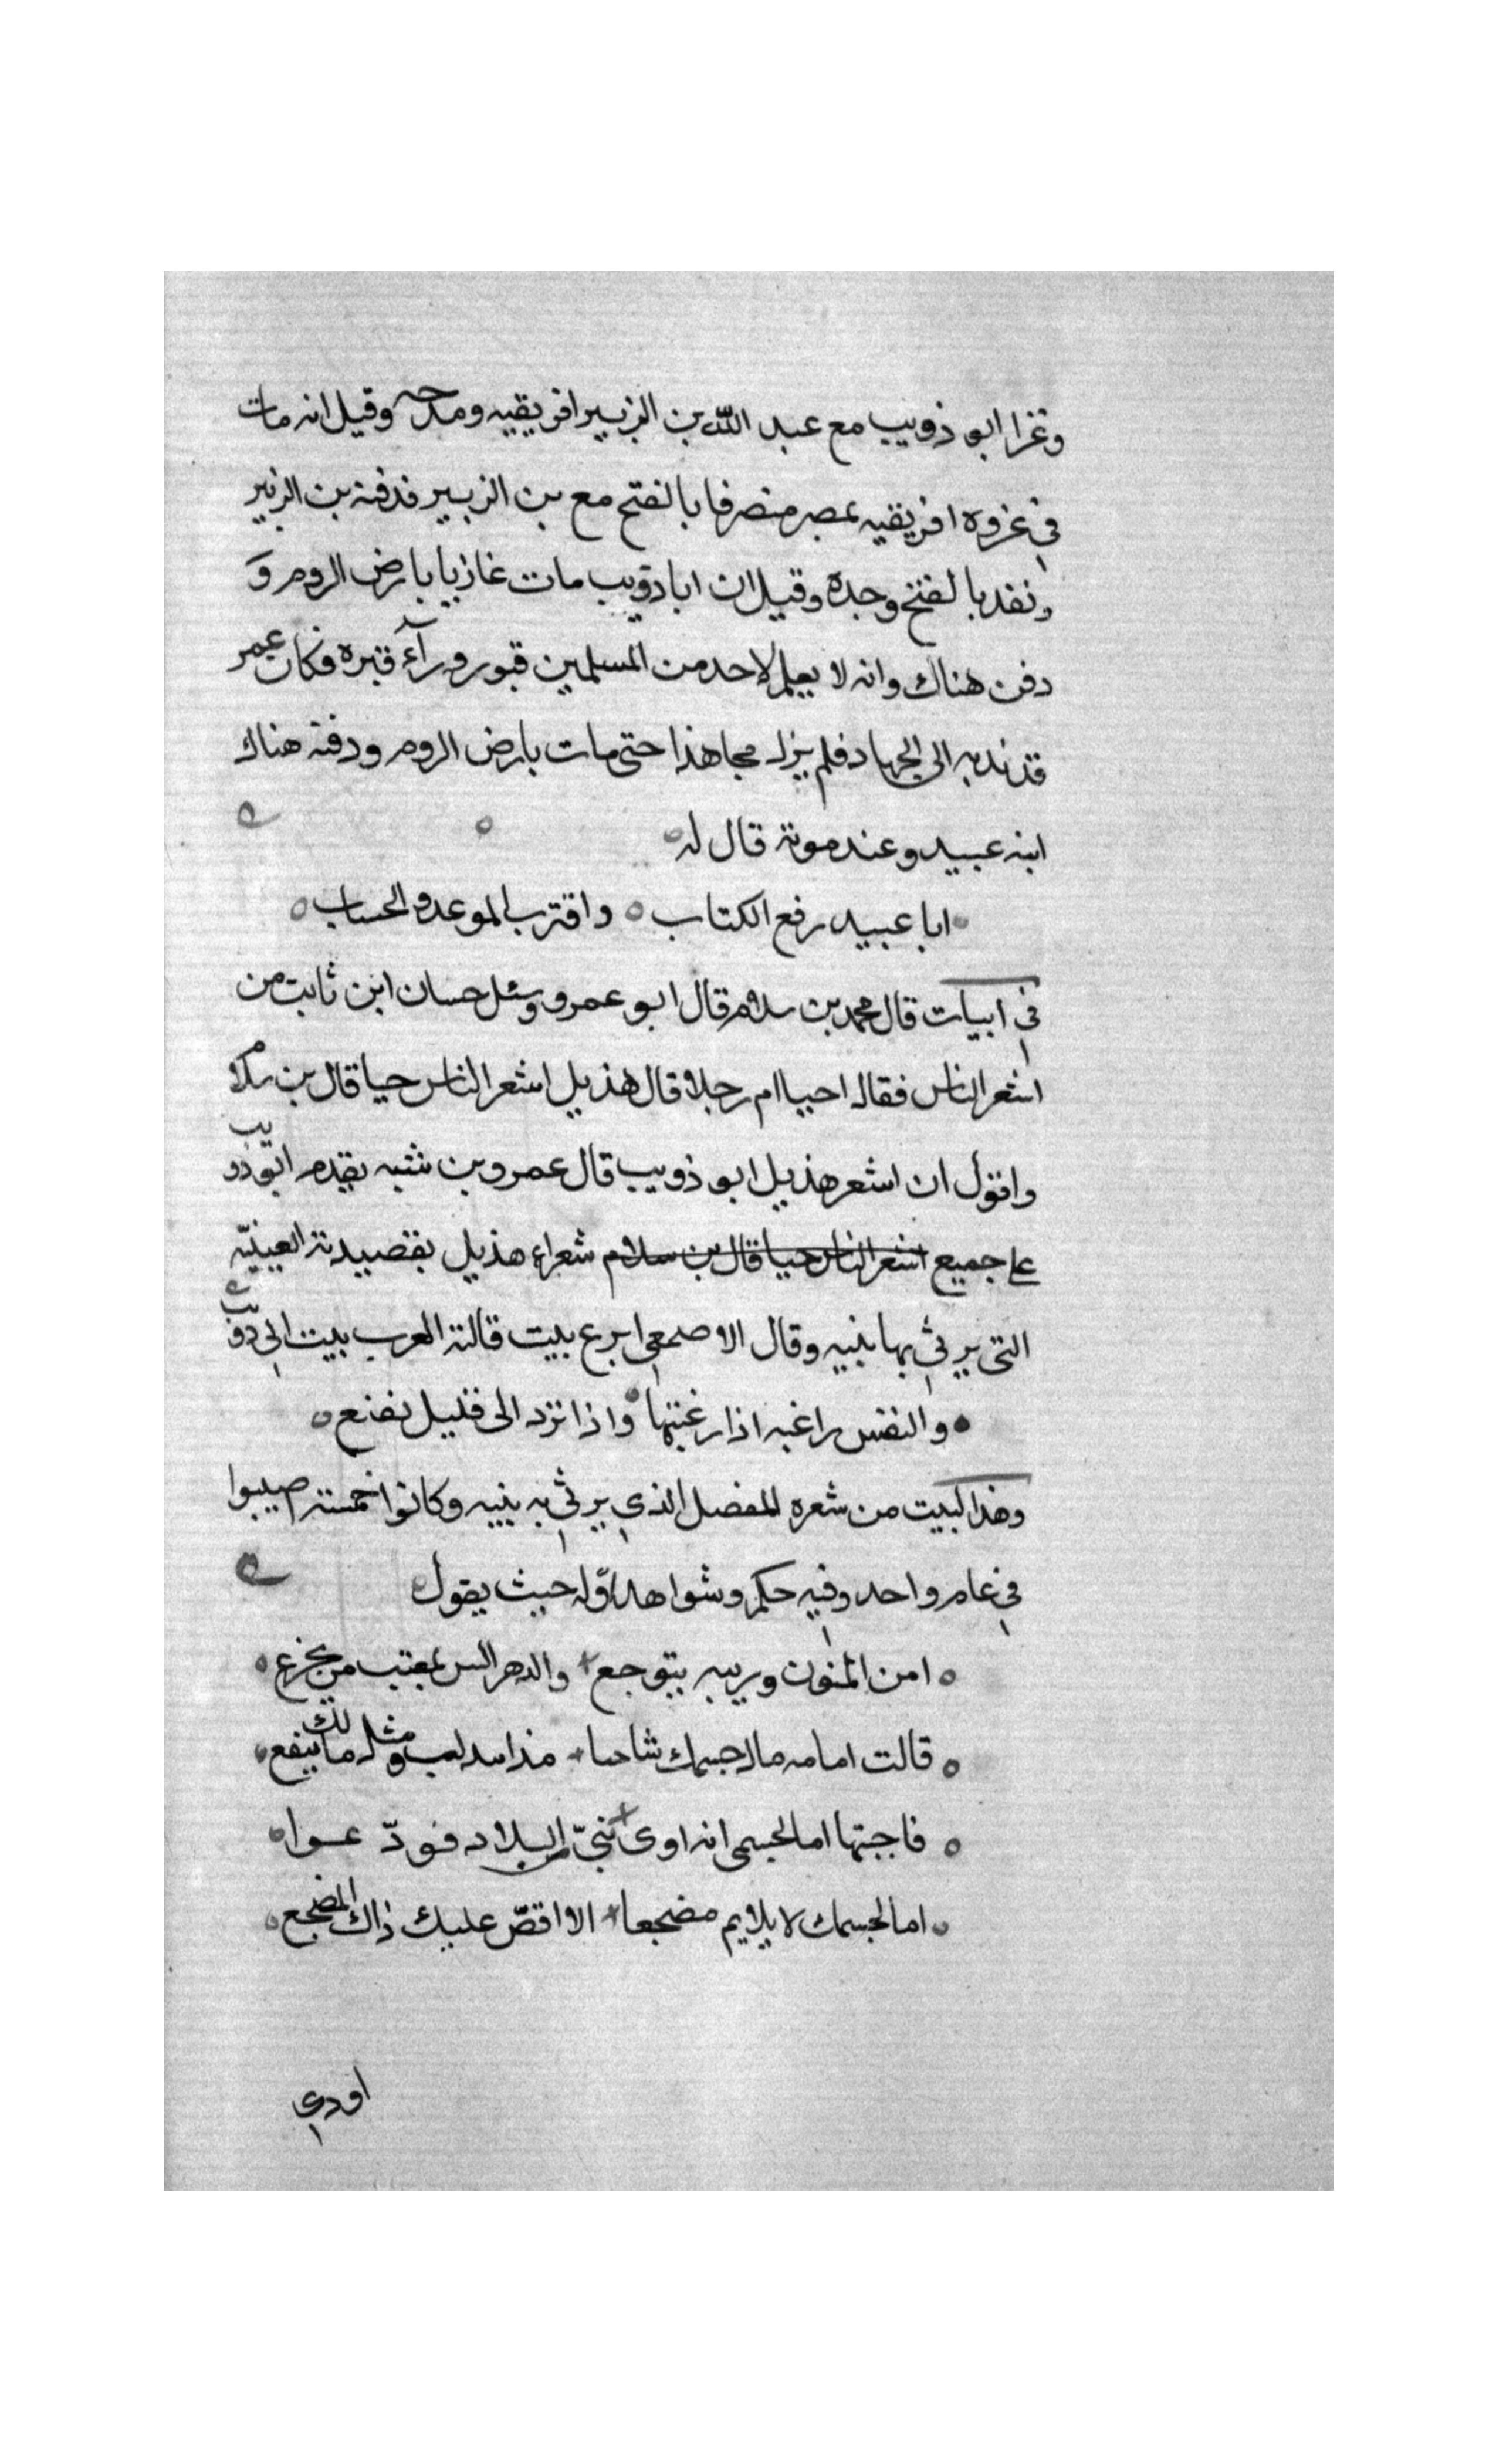 وغزا ابو ذويب مع عبد الله بن الزبير افريقيه ومدحه وقيل انه مات
في غزوه افريقيه بمصر منصرفا بالفتح مع بن الزبير فدفنه بن الزبير
ونفد بالفتح وحده وقيل ان ابا ذويب مات غازيا بارض الروم و
دفن هناك وانه لا يعلم لاحد من المسلمين قبور ورآء قبره فكان عمر
قد ندبه الى الجهاد فلم يزل مجاهذا حتى مات بارض الروم ودفنه هناك
ابنه عبيد وعند موته قال له
ابا عبيد رفع الكتاب ٥ واقترب الموعد والحساب ٥
في ابيات قال محمد بن سلام قال ابو عمرو وسئل حسان ابن ثابت من
اشعر الناس فقال احيا ام رجلا قال هذيل اشعر الناس حيا قال بن سلام
واقول ان اشعر هذيل ابو ذويب قال عمرو بن شبه يقدم ابو ذويب
على جميع اشعر الناس حيا قال بن سلام شعراء هذيل بقصيدته العينيّه
التي يرثي بها بنيه وقال الاصمعي ابرع بيت قالته العرب بيت ابي ذويب
والنفس راغبه اذا رغبتها واذا ترد الى قليل تقنع ٥
وهذا البيت من شعره المفضل الذي يرثي به بنيه وكانوا خمسة اصيبوا
في عام واحد وفيه حكم وشواهد اوّله حيث يقول
٥ امن المنون وريبه يتوجع والدهر ليس بمعتب من يجزع ٥
٥ قالت امامه ما لجسمك شاحبا منذ ابتدلت ومثل مالك ينفع
٥ فاجبتها اما لجسمي انه اودى بنيّ من البلاد فودّعوا
اما لجسمك لا يلايم مضجعا الا اقضّ عليك ذاك المضجع
اودي